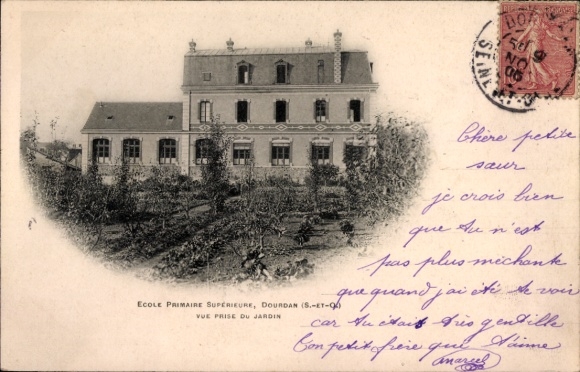 DOURDAN
SEINE-ET-O
Chère petite
sœur
je crois bien
que tu n'est
pas plus méchante
que quand j'ai été te voir
car tu était très gentille
Ton petit frère qui t'aime
Marcel
ECOLE PRIMAIRE SUPÉRIEURE, DOURDAN (S.-ET-O.)
VUE PRISE DU JARDIN